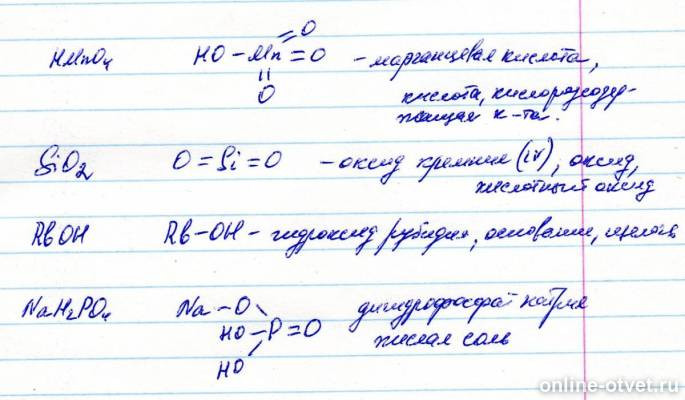 HMnO4 HO–Mn=O =O =O – марганцевая кислота,
кислота, кислородсодер-
жащая к-та.
SiO2 O=Si=O – оксид кремния (iv), оксид,
кислотный оксид
RbOH Rb–OH – гидроксид рубидия, основание, щелочь
NaH2PO4 Na–O HO–P=O HO дигидрофосфат натрия
кислая соль
online-otvet.ru